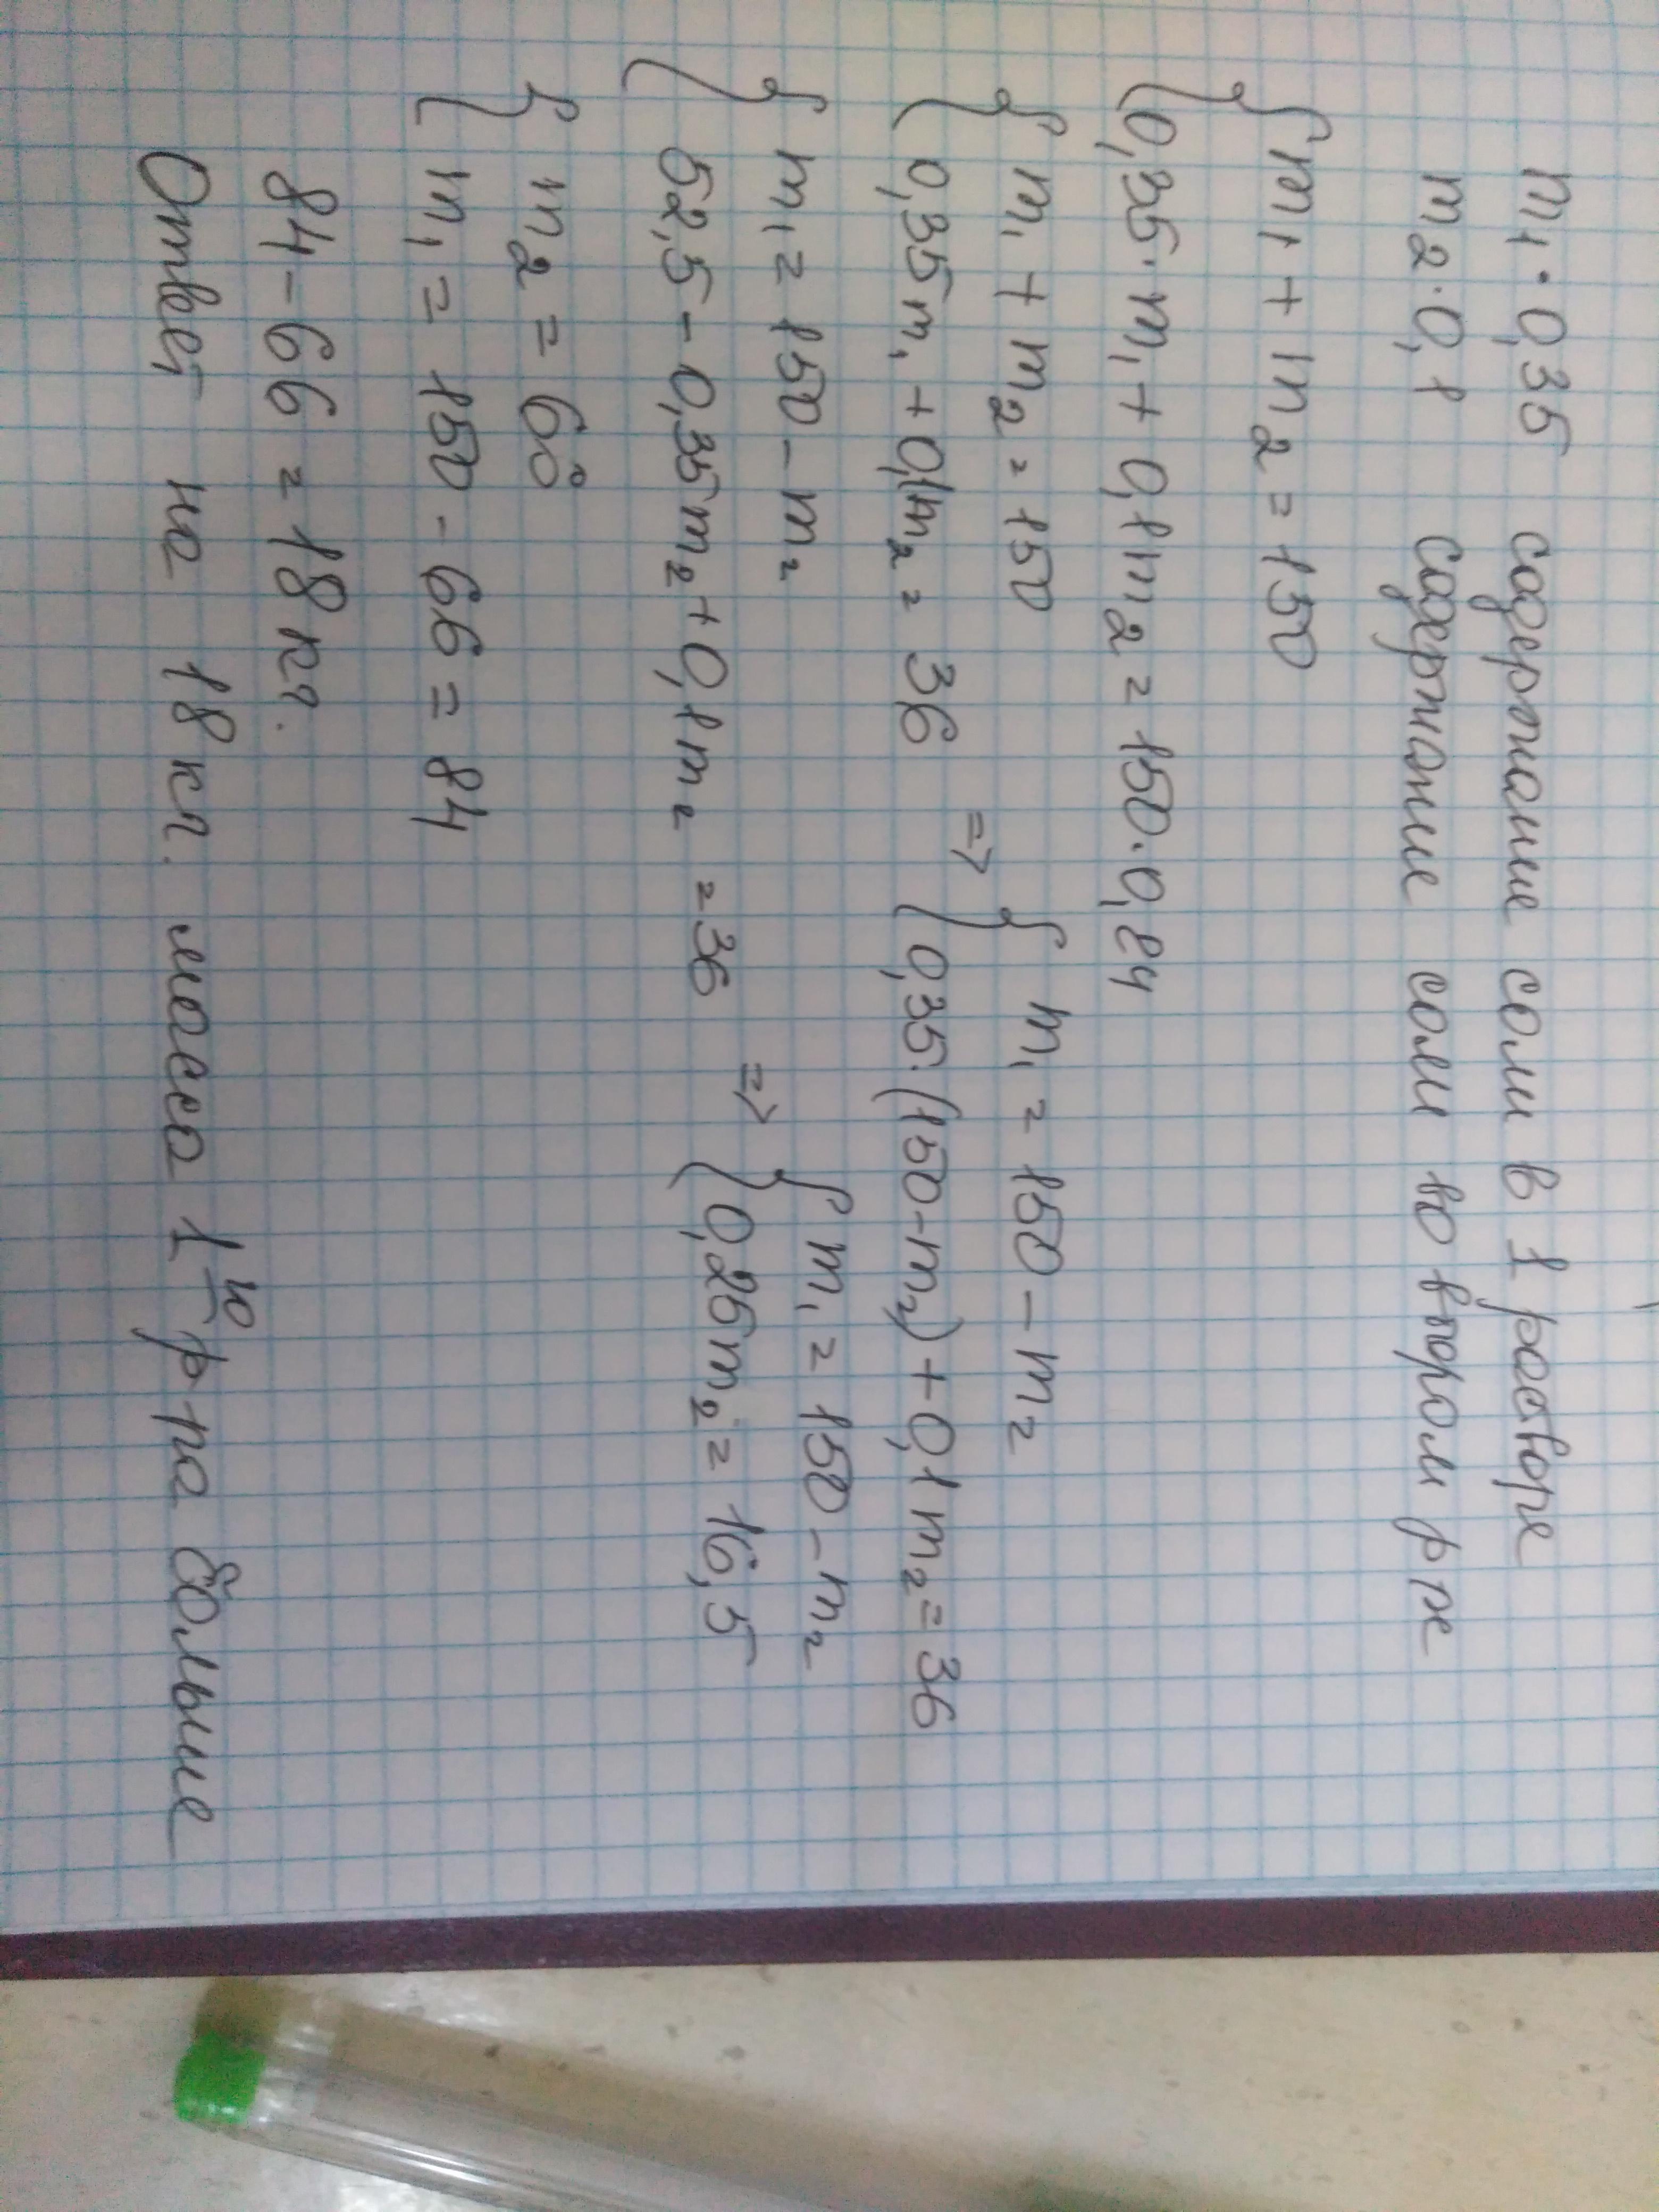 m₁·0,35 содержание соли в 1 растворе
m₂·0,1 содержание соли во втором р-ре
{ m₁ + m₂ = 150
{ 0,35·m₁ + 0,1m₂ = 150·0,24
{ m₁ + m₂ = 150
{ 0,35m₁ + 0,1m₂ = 36 => { m₁ = 150 - m₂
{ 0,35·(150-m₂) + 0,1m₂ = 36
{ m₁ = 150 - m₂
{ 52,5 - 0,35m₂ + 0,1m₂ = 36 => { m₁ = 150 - m₂
{ 0,25m₂ = 16,5
{ m₂ = 66
{ m₁ = 150 - 66 = 84
84 - 66 = 18 кг.
Ответ на 18 кг. масса 1го р-ра больше